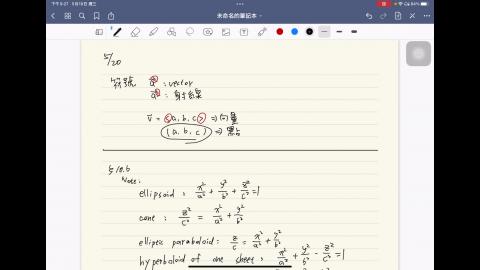 下午5:27 5月18日 週三
未命名的筆記本
84%
5/20
符號 a⃑ : vector
a⃑ : 射線
v̄ = <a, b, c> ⇒ 向量
(a, b, c) ⇒ 點
§10.6
Note:
ellipsoid : x²/a² + y²/b² + z²/c² = 1
cone : z²/c² = x²/a² + y²/b²
elliptic paraboloid : z/c = x²/a² + y²/b²
hyperboloid of one sheet : x²/a² + y²/b² - z²/c² = 1